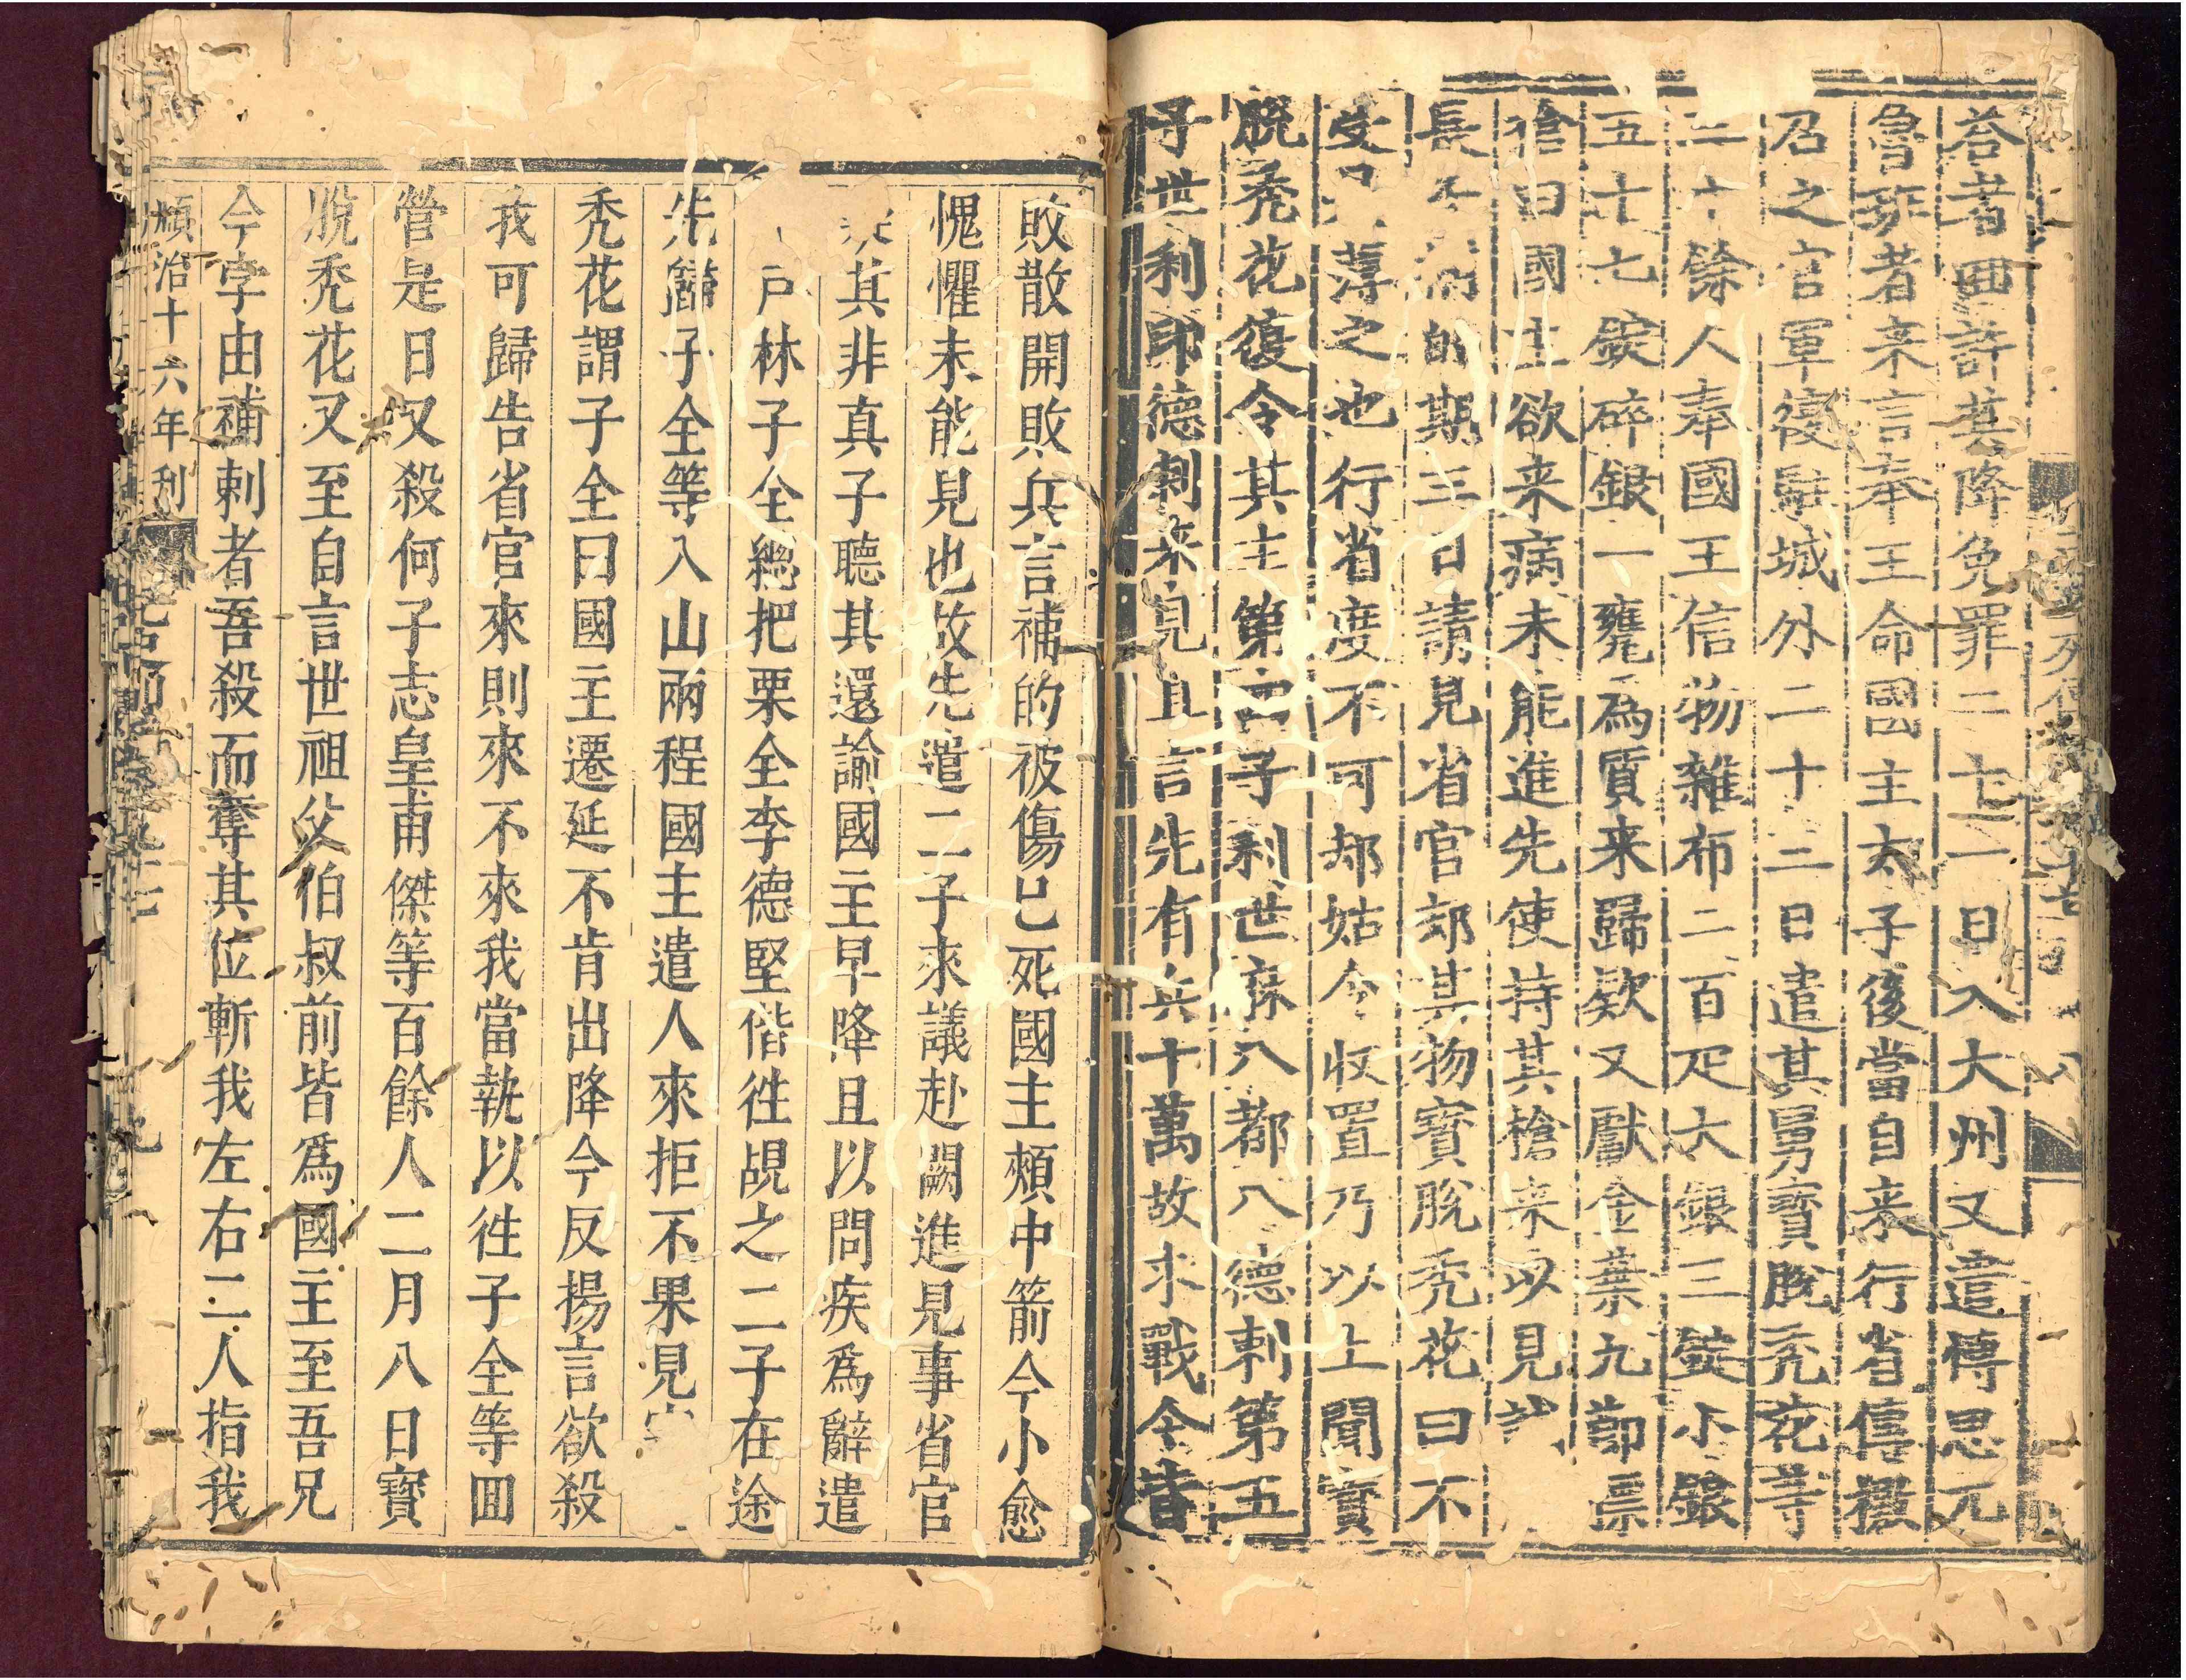 荅者回許其降免罪二十一日入大州又遣愽思兀
魯班者来言奉王命國主太子後當自来行省傳檄
召之官軍復駐城外二十三日遣其舅寳脫禿花等
三十餘人奉國王信物雜布二百疋大銀三錠小銀
五十七錠碎銀一甕為質来歸欵又獻金葉九節標
槍曰國主欲来病未能進先使持其槍来以見誠
長子補的期三日請見省官郤其物寳脫禿花曰不
受是薄之也行省度不可郤姑令收置乃以上聞寳
脫禿花復令其主第四子利世麻八都八德剌第五
子世利印德剌来見且言先有兵十萬故求戰今皆
敗散聞敗兵言補的被傷已死國主頰中箭今小愈
愧懼未能見也故先遣二子來議赴闕進見事省官
疑其非真子聽其還諭國主早降且以問疾爲辭遣
戶林子全總把栗全李德堅偕徃覘之二子在途
先歸子全等入山兩程國主遣人來拒不果見
禿花謂子全曰國主遷延不肯出降今反揚言欲殺
我可歸告省官來則來不來我當執以徃子全等囬
營是日又殺何子志皇甫傑等百餘人二月八日寳
脫禿花又至自言世祖父伯叔前皆爲國主至吾兄
今孛由補剌者吾殺而奪其位斬我左右二人指我
順治十六年刋